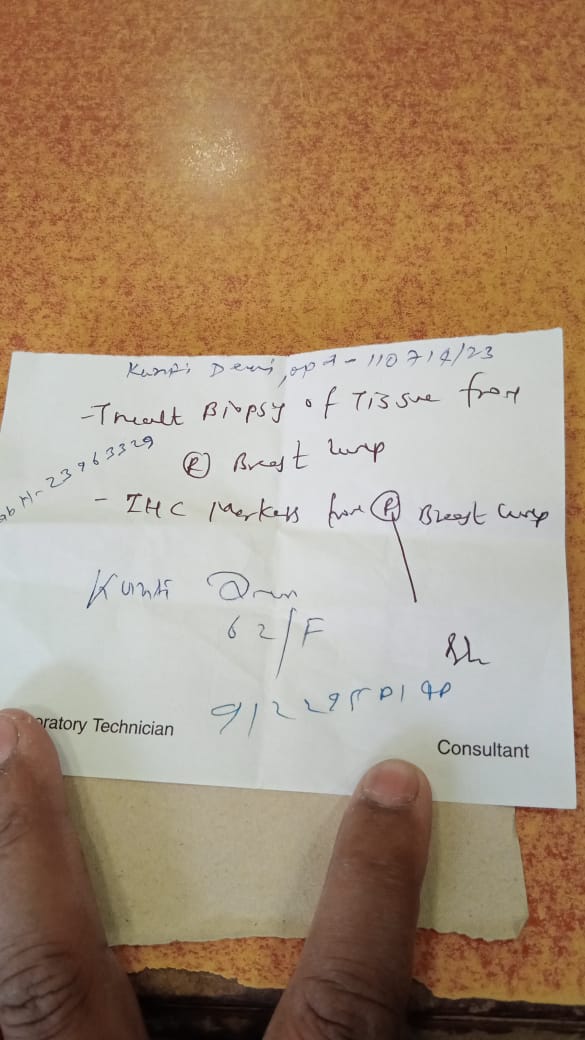 Kunti Devi, opd - 110714/23
- Trucut Biopsy of Tissue from
Ⓡ Breast lump
Lab N - 23963329
- IHC Markers from Ⓡ Breast lump
Kunti
62/F
oratory Technician
Consultant